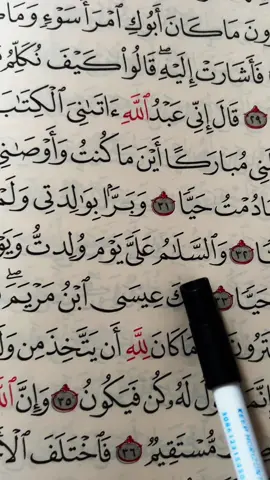 ونَ مَا كَانَ أَبُوكِ ٱمْرَأَ سَوْءٍ وَمَا
فَأَشَارَتْ إِلَيْهِ ۖ قَالُوا۟ كَيْفَ نُكَلِّمُ
٢٩ قَالَ إِنِّى عَبْدُ ٱللَّهِ ءَاتَىٰنِىَ ٱلْكِتَٰبَ
نِى مُبَارَكًا أَيْنَ مَا كُنتُ وَأَوْصَٰنِى
مَادُمْتُ حَيًّا ٣١ وَبَرًّۢا بِوَٰلِدَتِى وَلَمْ
ا ٣٢ وَٱلسَّلَٰمُ عَلَىَّ يَوْمَ وُلِدتُّ وَيَوْ
حَيًّا ٣٣ كَ عِيسَى ٱبْنُ مَرْيَمَ ۖ
تَرُونَ مَا كَانَ لِلَّهِ أَن يَتَّخِذَ مِن وَلَ
نَّمَا ولُ لَهُۥ كُن فَيَكُونُ ٣٥ وَإِنَّ ٱللَّ
مُّسْتَقِيمٌ ٣٦ فَٱخْتَلَفَ ٱلْأَ